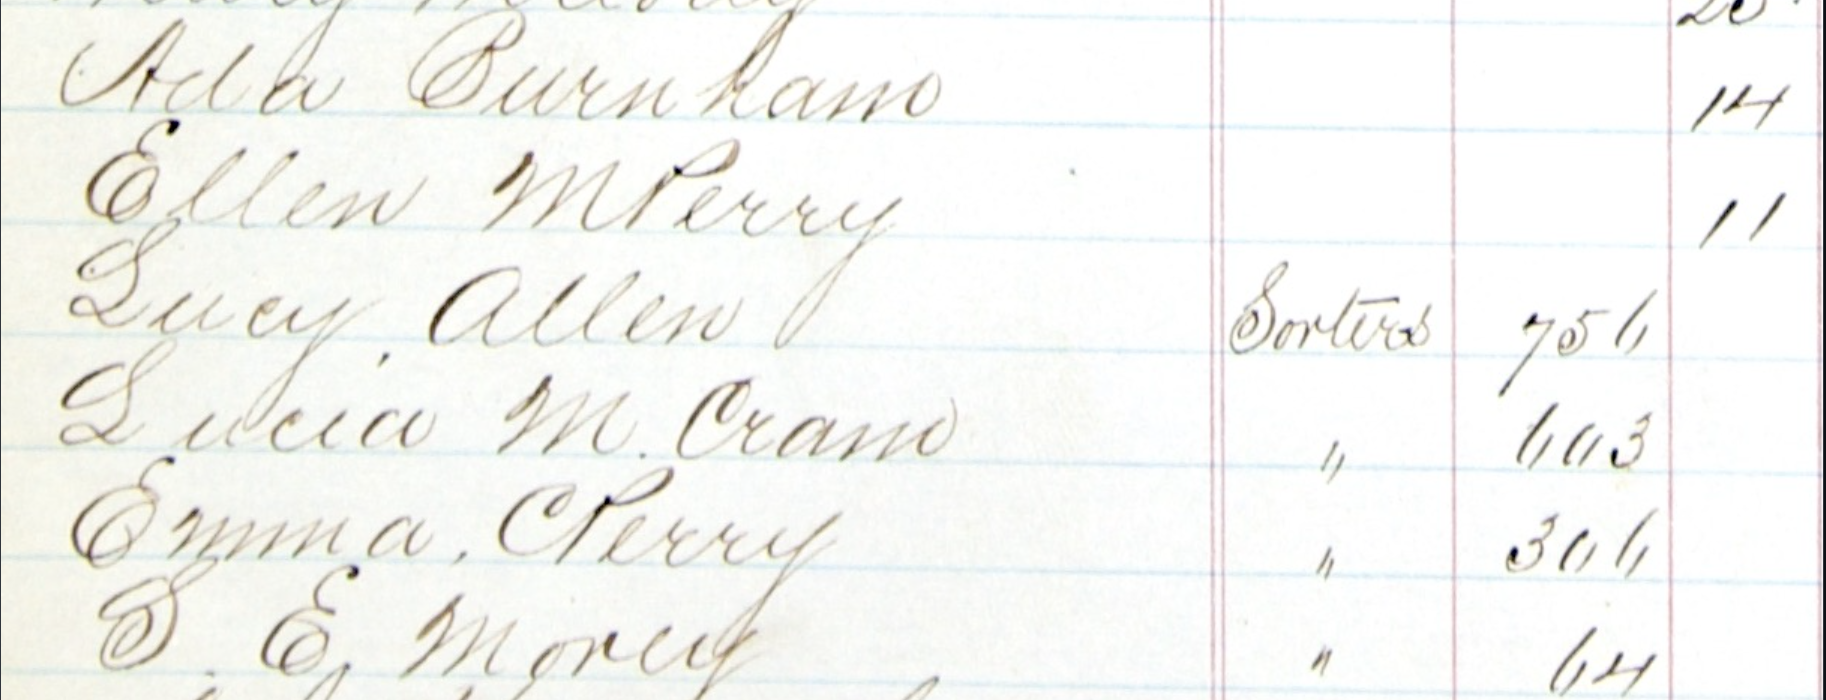 Ada Burnham 14
Ellen M Perry 11
Lucy Allen Sorters 756
Lucia M. Cram " 603
Emma. C Perry " 306
S. E. Morey " 64